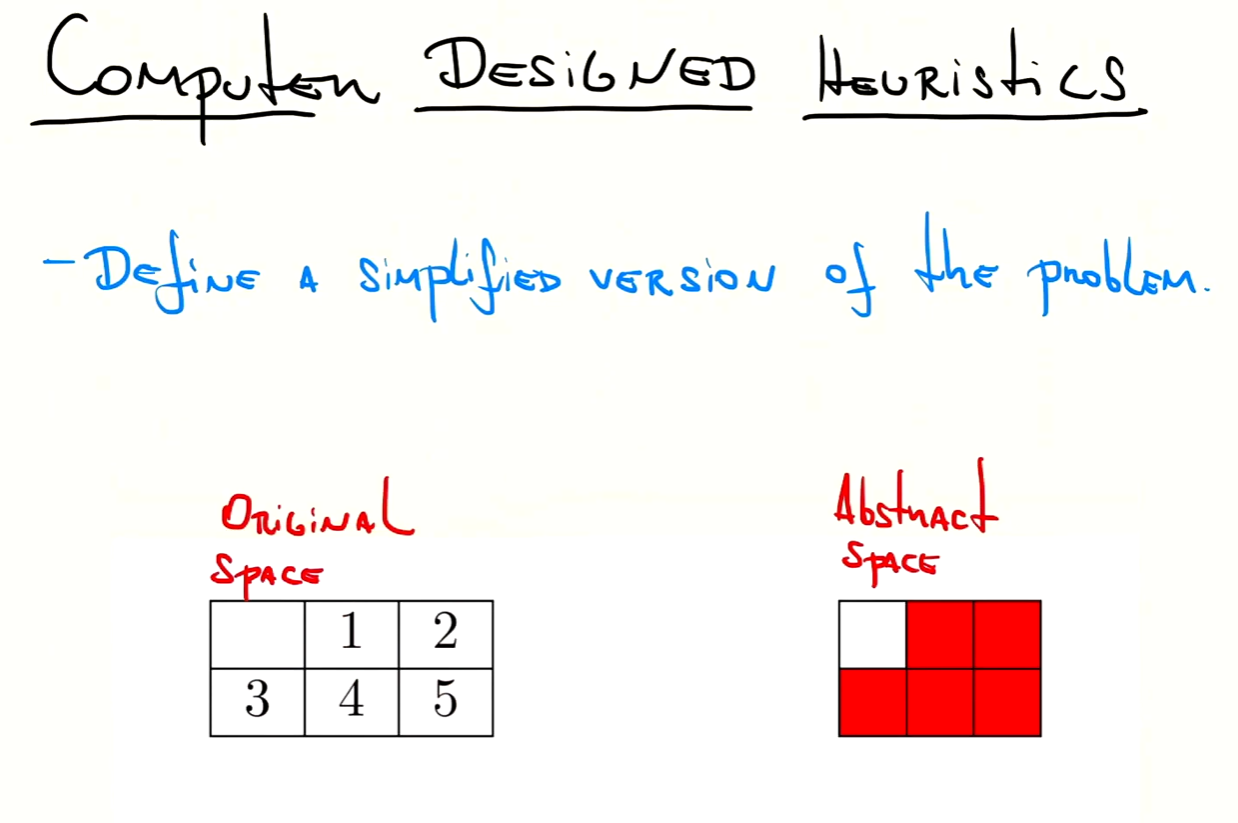 Computer Designed Heuristics
- Define a simplified version of the problem.
Original
Space
Abstract
Space
1 2
3 4 5